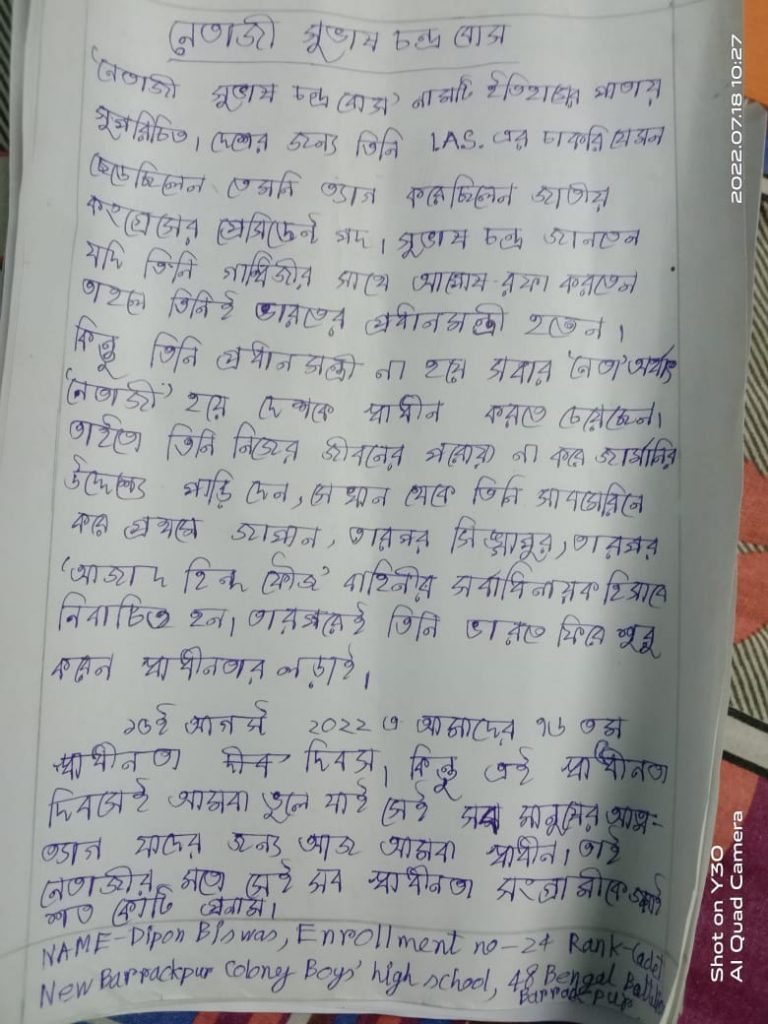 নেতাজী সুভাষ চন্দ্র বোস
'নেতাজী সুভাষ চন্দ্র বোস' নামটি ইতিহাসের পাতায়
সুপরিচিত। দেশের জন্য তিনি I.A.S. এর চাকরি যেমন
ছেড়েছিলেন তেমনি ত্যাগ করেছিলেন জাতীয়
কংগ্রেসের প্রেসিডেন্ট পদ। সুভাষ চন্দ্র জানতেন
যদি তিনি গান্ধিজীর সাথে আপোষ-রফা করতেন
তাহলে তিনিই ভারতের প্রধানমন্ত্রী হতেন।
কিন্তু তিনি প্রধানমন্ত্রী না হয়ে সবার 'নেতা' অর্থাৎ
'নেতাজী' হয়ে দেশকে স্বাধীন করতে চেয়েছেন।
তাইতো তিনি নিজের জীবনের পরোয়া না করে জার্মানির
উদ্দেশ্যে পাড়ি দেন, সেখান থেকে তিনি সাবমেরিনে
করে প্রথমে জাপান, তারপর সিঙ্গাপুর, তারপর
'আজাদ হিন্দ ফৌজ' বাহিনীর সর্বাধিনায়ক হিসাবে
নির্বাচিত হন। তারপরেই তিনি ভারতে ফিরে শুরু
করেন স্বাধীনতার লড়াই।
১৫ই আগস্ট 2022 এ আমাদের ৭৬ তম
স্বাধীনতা দিবস। কিন্তু এই স্বাধীনতা
দিবসেই আমরা ভুলে যাই সেই সব মানুষের আত্ম-
ত্যাগ যাদের জন্য আজ আমরা স্বাধীন। তাই
নেতাজীর মতো সেই সব স্বাধীনতা সংগ্রামীকে জানাই
শত কোটি প্রনাম।
NAME-Dipon Biswas, Enrollment no-24 Rank-Cadet
New Barrackpur Colony Boys' high school, 48 Bengal Battalion
Barrackpur
2022.07.18 10:27
Shot on Y30
AI Quad Camera